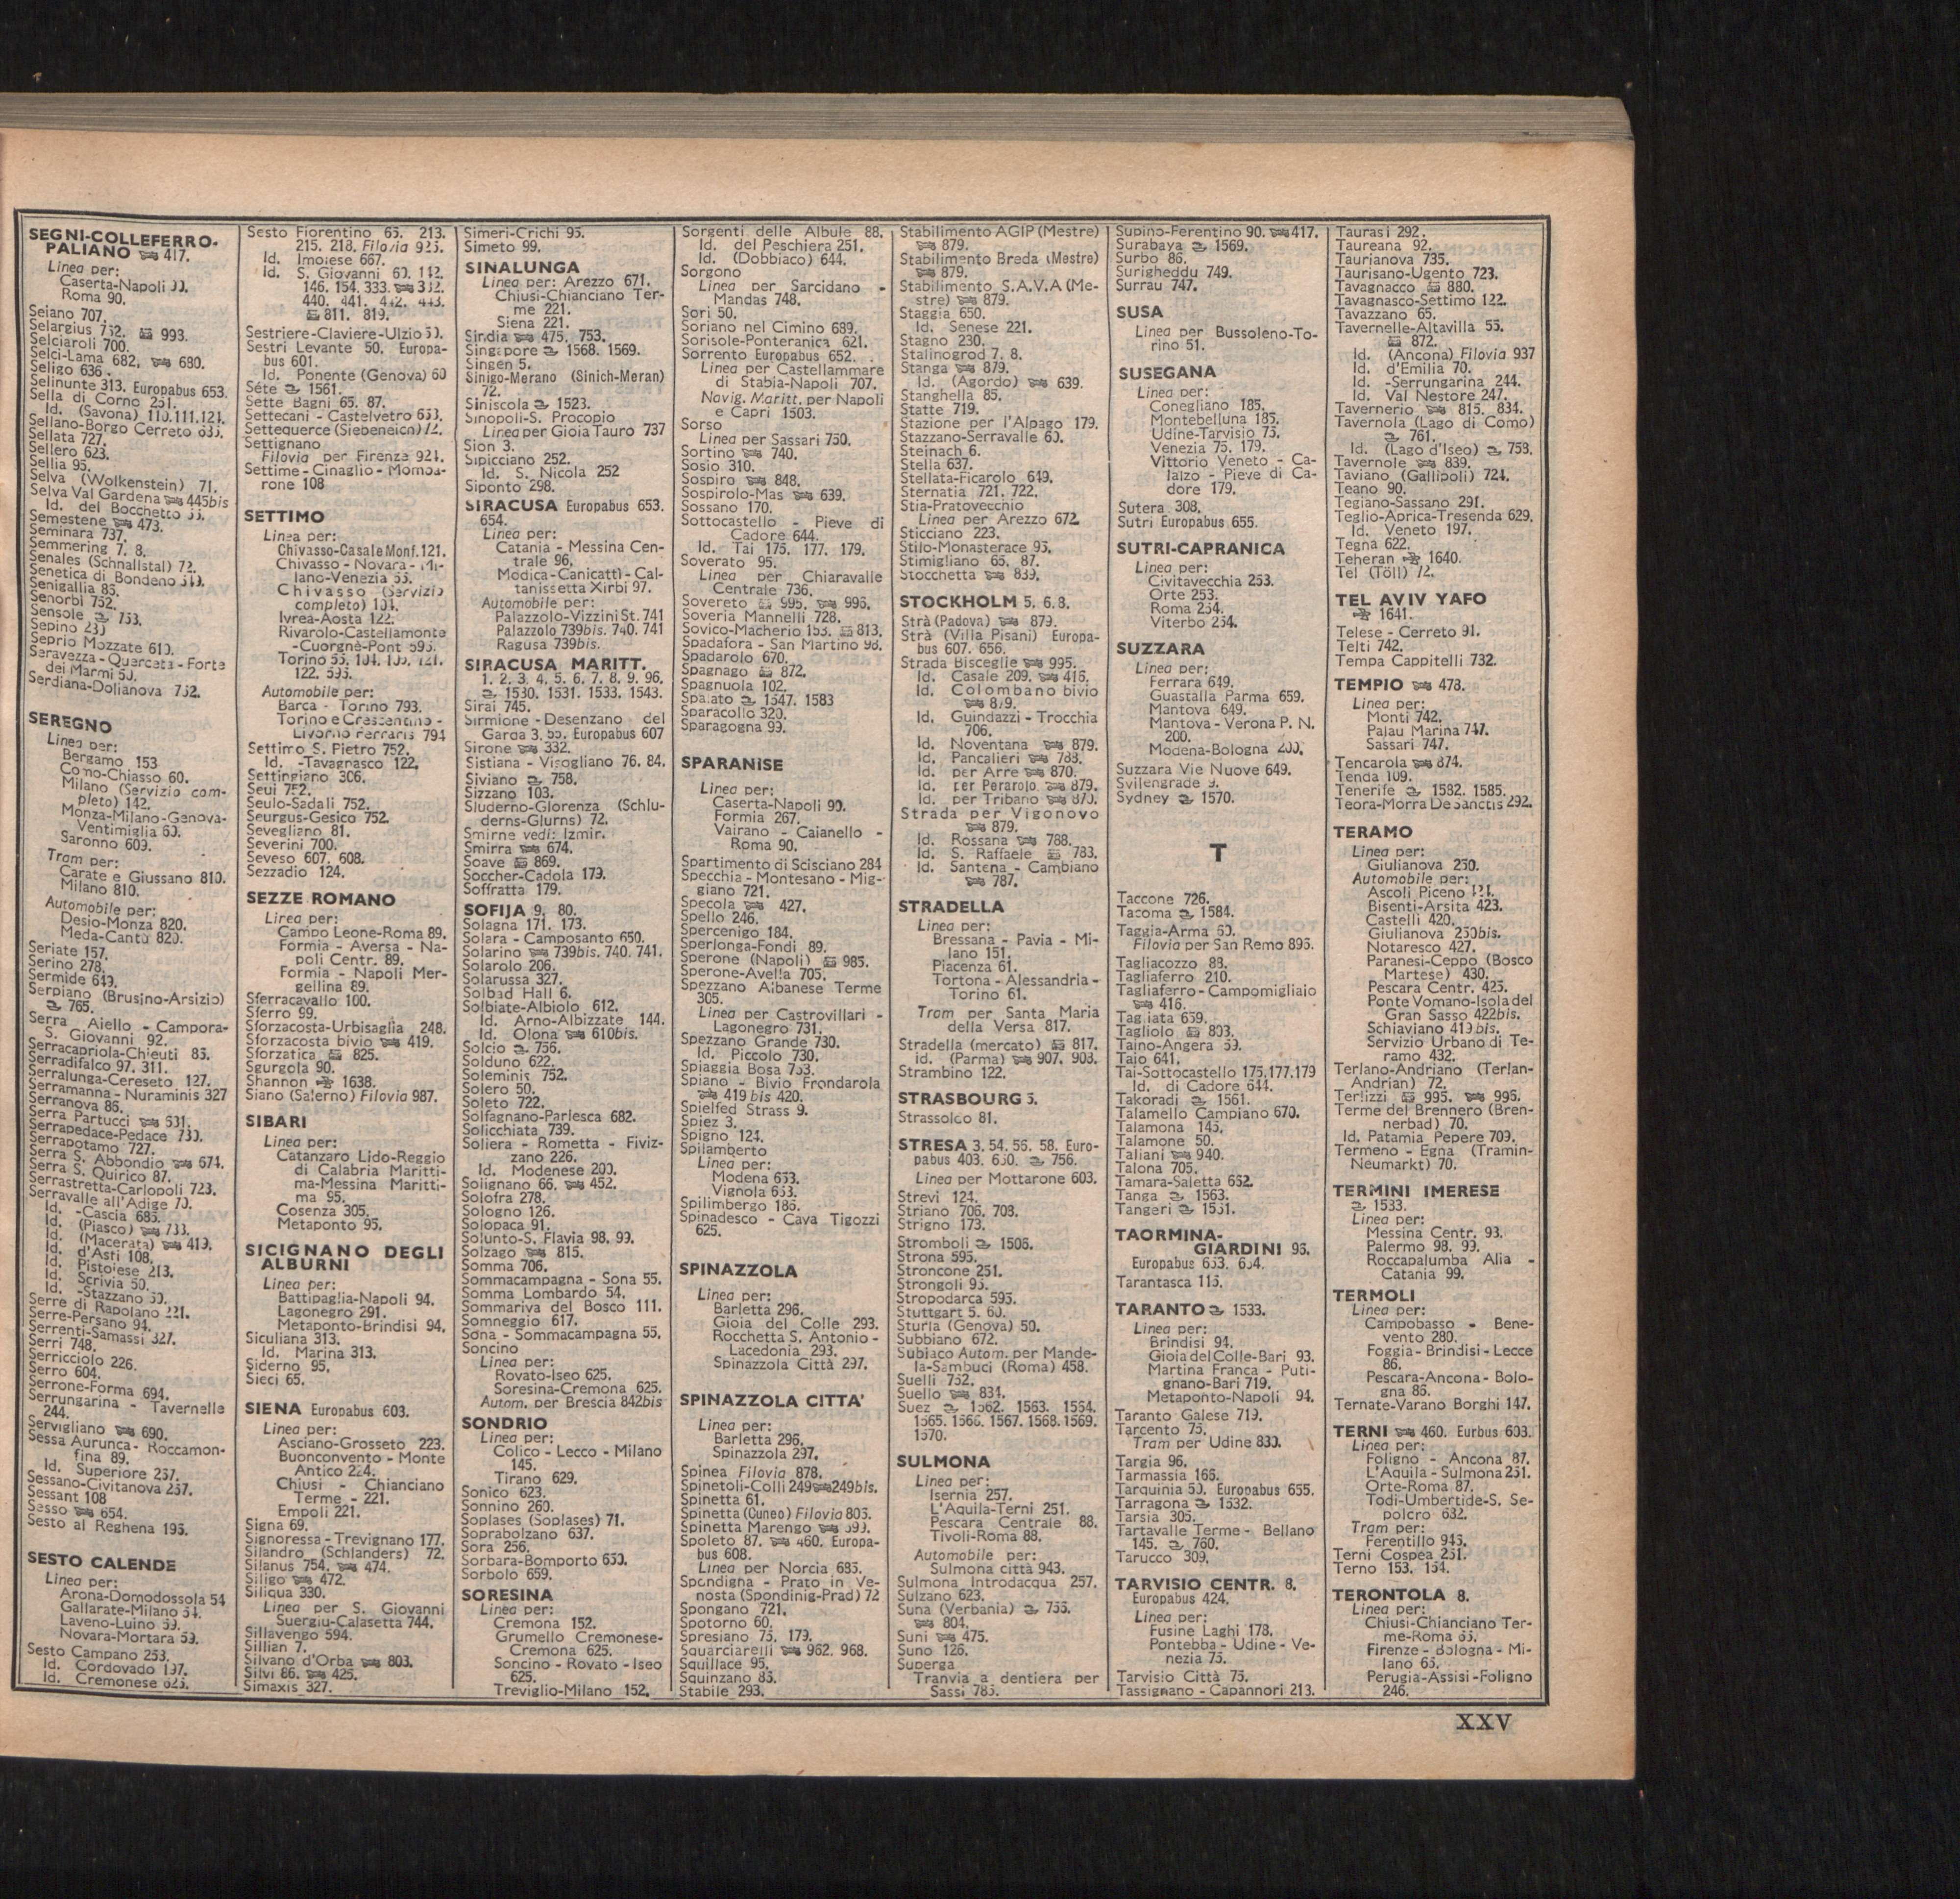 SEGNI-COLLEFERRO-
PALIANO 417.
Linea per:
Caserta-Napoli
Roma 90.
Seiano 707.
Selargius 752. 993.
Selciaroli 700.
Selci-Lama 682. 680.
Seligo 636.
Selinunte 313. Europabus 653.
Sella di Corno 251.
Id. (Savona) 110.111.121.
Sellano-Borgo Cerreto 685.
Sellata 727.
Sellero 623.
Sellia 95.
Selva (Wolkenstein) 71.
Selva Val Gardena 445bis
Id. del Bocchetto
Semestene 473.
Seminara 737.
Semmering 7. 8.
Senales (Schnallstal) 72.
Senetica di Bondeno
Senigallia 85.
Senorbì 752.
Sensole 753.
Sepino
Seprio Mozzate 610.
Seravezza - Querceta - Forte
dei Marmi 50.
Serdiana-Dolianova 752.
SEREGNO
Linea per:
Bergamo 153
Como-Chiasso 60.
Milano (Servizio com-
pleto) 142.
Monza-Milano-Genova-
Ventimiglia 60.
Saronno 609.
Tram per:
Carate e Giussano 810.
Milano 810.
Automobile per:
Desio-Monza 820.
Meda-Cantù 820.
Seriate 157.
Serino 278.
Sermide 649.
Serpiano (Brusino-Arsizio)
765.
Serra Aiello - Campora-
S. Giovanni 92.
Serracapriola-Chieuti 85.
Serradifalco 97. 311.
Serralunga-Cereseto 127.
Serramanna - Nuraminis 327
Serranova 86.
Serra Partucci 631.
Serrapedace-Pedace 730.
Serrapotamo 727.
Serra S. Abbondio 674.
Serra S. Quirico 87.
Serrastretta-Carlopoli 723.
Serravalle all'Adige 70.
Id. -Cascia 685.
Id. (Piasco) 733.
Id. (Macerata) 419.
Id. d'Asti 108.
Id. Pistoiese 213.
Id. Scrivia 50.
Id. -Stazzano
Serre di Rapolano 221.
Serre-Persano 94.
Serrenti-Samassi 327.
Serri 748.
Serricciolo 226.
Serro 604.
Serrone-Forma 694.
Serrungarina - Tavernelle
244.
Servigliano 690.
Sessa Aurunca- Roccamon-
fina 89.
Id. Superiore 267.
Sessano-Civitanova 257.
Sessant 108
Sesso 654.
Sesto al Reghena 195.
SESTO CALENDE
Linea per:
Arona-Domodossola 54
Gallarate-Milano 54.
Laveno-Luino 59.
Novara-Mortara 59.
Sesto Campano 253.
Id. Cordovado 197.
Id. Cremonese 625.
Sesto Fiorentino 65. 213.
215. 218. Filovia 925.
Id. Imolese 667.
Id. S. Giovanni 60. 142.
146. 154. 333. 332.
440. 441. 442. 443.
811. 819.
Sestriere-Claviere-Ulzio 50.
Sestri Levante 50. Europa-
bus 601.
Id. Ponente (Genova) 60
Séte 1561.
Sette Bagni 65. 87.
Settecani - Castelvetro 653.
Settequerce (Siebeneich) 72.
Settignano
Filovia per Firenze 924.
Settime - Cinaglio - Momba-
rone 108
SETTIMO
Linea per:
Chivasso-Casale Monf. 121.
Chivasso - Novara - Mi-
lano-Venezia 55.
Chivasso (Servizio
completo) 104.
Ivrea-Aosta 122.
Rivarolo-Castellamonte
-Cuorgnè-Pont 595.
Torino 55. 104. 105. 121.
122. 595.
Automobile per:
Barca - Torino 793.
Torino e Crescentino -
Livorno Ferraris 794
Settimo S. Pietro 752.
Id. -Tavagnasco 122.
Settingiano 306.
Seui 752.
Seulo-Sadali 752.
Seurgus-Gesico 752.
Sevegliano 81.
Severini 700.
Seveso 607. 608.
Sezzadio 124.
SEZZE ROMANO
Linea per:
Campo Leone-Roma 89.
Formia - Aversa - Na-
poli Centr. 89.
Formia - Napoli Mer-
gellina 89.
Sferracavallo 100.
Sferro 99.
Sforzacosta-Urbisaglia 248.
Sforzacosta bivio 419.
Sforzatica 825.
Sgurgola 90.
Shannon 1638.
Siano (Salerno) Filovia 987.
SIBARI
Linea per:
Catanzaro Lido-Reggio
di Calabria Maritti-
ma-Messina Maritti-
ma 95.
Cosenza 305.
Metaponto 95.
SICIGNANO DEGLI
ALBURNI
Linea per:
Battipaglia-Napoli 94.
Lagonegro 291.
Metaponto-Brindisi 94.
Siculiana 313.
Id. Marina 313.
Siderno 95.
Sieci 65.
SIENA Europabus 603.
Linea per:
Asciano-Grosseto 223.
Buonconvento - Monte
Antico 224.
Chiusi - Chianciano
Terme - 221.
Empoli 221.
Signa 69.
Signoressa - Trevignano 177.
Silandro (Schlanders) 72.
Silanus 754. 474.
Siligo 472.
Siliqua 330.
Linea per S. Giovanni
Suergiu-Calasetta 744.
Sillavengo 594.
Sillian 7.
Silvano d'Orba 803.
Silvi 86. 425.
Simaxis 327.
Simeri-Crichi 95.
Simeto 99.
SINALUNGA
Linea per: Arezzo 671.
Chiusi-Chianciano Ter-
me 221.
Siena 221.
Sindia 475. 753.
Singapore 1568. 1569.
Singen 5.
Sinigo-Merano (Sinich-Meran)
72.
Siniscola 1523.
Sinopoli-S. Procopio
Linea per Gioia Tauro 737
Sion 3.
Sipicciano 252.
Id. S. Nicola 252
Siponto 298.
SIRACUSA Europabus 653.
654.
Linea per:
Catania - Messina Cen-
trale 96.
Modica-Canicattì - Cal-
tanissetta Xirbi 97.
Automobile per:
Palazzolo-Vizzini St. 741
Palazzolo 739bis. 740. 741
Ragusa 739bis.
SIRACUSA MARITT.
1. 2. 3. 4. 5. 6. 7. 8. 9. 96.
1530. 1531. 1533. 1543.
Sirai 745.
Sirmione - Desenzano del
Garda 3. 55. Europabus 607
Sirone 332.
Sistiana - Visogliano 76. 84.
Siviano 758.
Sizzano 103.
Sluderno-Glorenza (Schlu-
derns-Glurns) 72.
Smirne vedi: Izmir.
Smirra 674.
Soave 869.
Soccher-Cadola 179.
Soffratta 179.
SOFIJA 9. 80.
Solagna 171. 173.
Solara - Camposanto 650.
Solarino 739bis. 740. 741.
Solarolo 206.
Solarussa 327.
Solbad Hall 6.
Solbiate-Albiolo 612.
Id. Arno-Albizzate 144.
Id. Olona 610bis.
Solcio 756.
Solduno 622.
Soleminis 752.
Solero 50.
Soleto 722.
Solfagnano-Parlesca 682.
Solicchiata 739.
Soliera - Rometta - Fiviz-
zano 226.
Id. Modenese 200.
Solignano 66. 452.
Solofra 278.
Sologno 126.
Solopaca 91.
Solunto-S. Flavia 98. 99.
Solzago 815.
Somma 706.
Sommacampagna - Sona 55.
Somma Lombardo 54.
Sommariva del Bosco 111.
Somneggio 617.
Sona - Sommacampagna 55.
Soncino
Linea per:
Rovato-Iseo 625.
Soresina-Cremona 625.
Autom. per Brescia 842bis
SONDRIO
Linea per:
Colico - Lecco - Milano
145.
Tirano 629.
Sonico 623.
Sonnino 260.
Soplases (Soplases) 71.
Soprabolzano 637.
Sora 256.
Sorbara-Bomporto 650.
Sorbolo 659.
SORESINA
Linea per:
Cremona 152.
Grumello Cremonese-
Cremona 625.
Soncino - Rovato - Iseo
625.
Treviglio-Milano 152.
Sorgenti delle Albule 88.
Id. del Peschiera 251.
Id. (Dobbiaco) 644.
Sorgono
Linea per Sarcidano -
Mandas 748.
Sori 50.
Soriano nel Cimino 689.
Sorisole-Ponteranica 621.
Sorrento Europabus 652.
Linea per Castellammare
di Stabia-Napoli 707.
Navig. Maritt. per Napoli
e Capri 1503.
Sorso
Linea per Sassari 750.
Sortino 740.
Sosio 310.
Sospiro 848.
Sospirolo-Mas 639.
Sossano 170.
Sottocastello - Pieve di
Cadore 644.
Id. Tai 175. 177. 179.
Soverato 95.
Linea per Chiaravalle
Centrale 736.
Sovereto 995. 996.
Soveria Mannelli 728.
Sovico-Macherio 153. 813.
Spadafora - San Martino 98.
Spadarolo 670.
Spagnago 872.
Spagnuola 102.
Spalato 1547. 1583
Sparacollo 320.
Sparagogna 99.
SPARANISE
Linea per:
Caserta-Napoli 90.
Formia 267.
Vairano - Caianello -
Roma 90.
Spartimento di Scisciano 284
Specchia - Montesano - Mig-
giano 721.
Specola 427.
Spello 246.
Spercenigo 184.
Sperlonga-Fondi 89.
Sperone (Napoli) 985.
Sperone-Avella 705.
Spezzano Albanese Terme
305.
Linea per Castrovillari -
Lagonegro 731.
Spezzano Grande 730.
Id. Piccolo 730.
Spiaggia Bosa 753.
Spiano - Bivio Frondarola
419 bis 420.
Spielfed Strass 9.
Spiez 3.
Spigno 124.
Spilamberto
Linea per:
Modena 653.
Vignola 653.
Spilimbergo 186.
Spinadesco - Cava Tigozzi
625.
SPINAZZOLA
Linea per:
Barletta 296.
Gioia del Colle 293.
Rocchetta S. Antonio -
Lacedonia 293.
Spinazzola Città 297.
SPINAZZOLA CITTA'
Linea per:
Barletta 296.
Spinazzola 297.
Spinea Filovia 878.
Spinetoli-Colli 249 249bis.
Spinetta 61.
Spinetta (Cuneo) Filovia 805.
Spinetta Marengo 599.
Spoleto 87. 460. Europa-
bus 608.
Linea per Norcia 685.
Spondigna - Prato in Ve-
nosta (Spondinig-Prad) 72
Spongano 721.
Spotorno 60.
Spresiano 75. 179.
Squarciarelli 962. 968.
Squillace 95.
Squinzano 85.
Stabile 293.
Stabilimento AGIP (Mestre)
879.
Stabilimento Breda (Mestre)
879.
Stabilimento S.A.V.A (Me-
stre) 879.
Staggia 650.
Id. Senese 221.
Stagno 230.
Stalinogrod 7. 8.
Stanga 879.
Id. (Agordo) 639.
Stanghella 85.
Statte 719.
Stazione per l'Alpago 179.
Stazzano-Serravalle 60.
Steinach 6.
Stella 637.
Stellata-Ficarolo 649.
Sternatia 721. 722.
Stia-Pratovecchio
Linea per Arezzo 672.
Sticciano 223.
Stilo-Monasterace 95.
Stimigliano 65. 87.
Stocchetta 839.
STOCKHOLM 5. 6.8.
Strà (Padova) 879.
Strà (Villa Pisani) Europa-
bus 607. 656.
Strada Bisceglie 995.
Id. Casale 209. 416.
Id. Colombano bivio
879.
Id. Guindazzi - Trocchia
706.
Id. Noventana 879.
Id. Pancalieri 788.
Id. per Arre 870.
Id. per Perarolo 879.
Id. per Tribano 870.
Strada per Vigonovo
879.
Id. Rossana 788.
Id. S. Raffaele 783.
Id. Santena - Cambiano
787.
STRADELLA
Linea per:
Bressana - Pavia - Mi-
lano 151.
Piacenza 61.
Tortona - Alessandria -
Torino 61.
Tram per Santa Maria
della Versa 817.
Stradella (mercato) 817.
id. (Parma) 907. 908.
Strambino 122.
STRASBOURG 5.
Strassoldo 81.
STRESA 3. 54. 56. 58. Euro-
pabus 403. 650. 756.
Linea per Mottarone 603.
Strevi 124.
Striano 706. 708.
Strigno 173.
Stromboli 1506.
Strona 595.
Stroncone 251.
Strongoli 95.
Stropodarca 595.
Stuttgart 5. 60.
Sturla (Genova) 50.
Subbiano 672.
Subiaco Autom. per Mande-
la-Sambuci (Roma) 458.
Suelli 752.
Suello 834.
Suez 1562. 1563. 1564.
1565. 1566. 1567. 1568. 1569.
1570.
SULMONA
Linea per:
Isernia 257.
L'Aquila-Terni 251.
Pescara Centrale 88.
Tivoli-Roma 88.
Automobile per:
Sulmona città 943.
Sulmona Introdacqua 257.
Sulzano 623.
Suna (Verbania) 755.
804.
Suni 475.
Suno 126.
Superga
Tranvia a dentiera per
Sassi 785.
Supino-Ferentino 90. 417.
Surabaya 1569.
Surbo 86.
Surigheddu 749.
Surrau 747.
SUSA
Linea per Bussoleno-To-
rino 51.
SUSEGANA
Linea per:
Conegliano 185.
Montebelluna 185.
Udine-Tarvisio 75.
Venezia 75. 179.
Vittorio Veneto - Ca-
lalzo - Pieve di Ca-
dore 179.
Sutera 308.
Sutri Europabus 655.
SUTRI-CAPRANICA
Linea per:
Civitavecchia 253.
Orte 253.
Roma 254.
Viterbo 254.
SUZZARA
Linea per:
Ferrara 649.
Guastalla Parma 659.
Mantova 649.
Mantova - Verona P. N.
200.
Modena-Bologna 200.
Suzzara Vie Nuove 649.
Svilengrade 9.
Sydney 1570.
T
Taccone 726.
Tacoma 1584.
Taggia-Arma 60.
Filovia per San Remo 896.
Tagliacozzo 88.
Tagliaferro 210.
Tagliaferro - Campomigliaio
416.
Tagliata 659.
Tagliolo 803.
Taino-Angera 59.
Taio 641.
Tai-Sottocastello 175.177.179
Id. di Cadore 644.
Takoradi 1561.
Talamello Campiano 670.
Talamona 145.
Talamone 50.
Taliani 940.
Talona 705.
Tamara-Saletta 652.
Tanga 1563.
Tangeri 1551.
TAORMINA-
GIARDINI 96.
Europabus 653. 654.
Tarantasca 115.
TARANTO 1533.
Linea per:
Brindisi 94.
Gioia del Colle-Bari 93.
Martina Franca - Puti-
gnano-Bari 719.
Metaponto-Napoli 94.
Taranto Galese 719.
Tarcento 75.
Tram per Udine 880.
Targia 96.
Tarmassia 166.
Tarquinia 50. Europabus 655.
Tarragona 1532.
Tarsia 305.
Tartavalle Terme - Bellano
145. 760.
Tarucco 309.
TARVISIO CENTR. 8.
Europabus 424.
Linea per:
Fusine Laghi 178.
Pontebba - Udine - Ve-
nezia 75.
Tarvisio Città 75.
Tassignano - Capannori 213.
Taurasi 292.
Taureana 92.
Taurianova 735.
Taurisano-Ugento 723.
Tavagnacco 880.
Tavagnasco-Settimo 122.
Tavazzano 65.
Tavernelle-Altavilla 55.
872.
Id. (Ancona) Filovia 937
Id. d'Emilia 70.
Id. -Serrungarina 244.
Id. Val Nestore 247.
Tavernerio 815. 834.
Tavernola (Lago di Como)
761.
Id. (Lago d'Iseo) 758.
Tavernole 839.
Taviano (Gallipoli) 724.
Teano 90.
Tegiano-Sassano 291.
Teglio-Aprica-Tresenda 629.
Id. Veneto 197.
Tegna 622.
Teheran 1640.
Tel (Töll) 72.
TEL AVIV YAFO
1641.
Telese - Cerreto 91.
Telti 742.
Tempa Cappitelli 732.
TEMPIO 478.
Linea per:
Monti 742.
Palau Marina 747.
Sassari 747.
Tencarola 874.
Tenda 109.
Tenerife 1582. 1585.
Teora-Morra De Sanctis 292.
TERAMO
Linea per:
Giulianova 250.
Automobile per:
Ascoli Piceno 424.
Bisenti-Arsita 423.
Castelli 420.
Giulianova 250bis.
Notaresco 427.
Paranesi-Ceppo (Bosco
Martese) 430.
Pescara Centr. 425.
Ponte Vomano-Isola del
Gran Sasso 422bis.
Schiaviano 419bis.
Servizio Urbano di Te-
ramo 432.
Terlano-Andriano (Terlan-
Andrian) 72.
Terlizzi 995. 996.
Terme del Brennero (Bren-
nerbad) 70.
Id. Patamia Pepere 709.
Termeno - Egna (Tramin-
Neumarkt) 70.
TERMINI IMERESE
1533.
Linea per:
Messina Centr. 98.
Palermo 98. 99.
Roccapalumba Alia -
Catania 99.
TERMOLI
Linea per:
Campobasso - Bene-
vento 280.
Foggia - Brindisi - Lecce
86.
Pescara-Ancona - Bolo-
gna 86.
Ternate-Varano Borghi 147.
TERNI 460. Eurbus 603.
Linea per:
Foligno - Ancona 87.
L'Aquila - Sulmona 251.
Orte-Roma 87.
Todi-Umbertide-S. Se-
polcro 682.
Tram per:
Ferentillo 945.
Terni Cospea 251.
Terno 153. 154.
TERONTOLA 8.
Linea per:
Chiusi-Chianciano Ter-
me-Roma 65.
Firenze - Bologna - Mi-
lano 65.
Perugia-Assisi-Foligno
246.
XXV